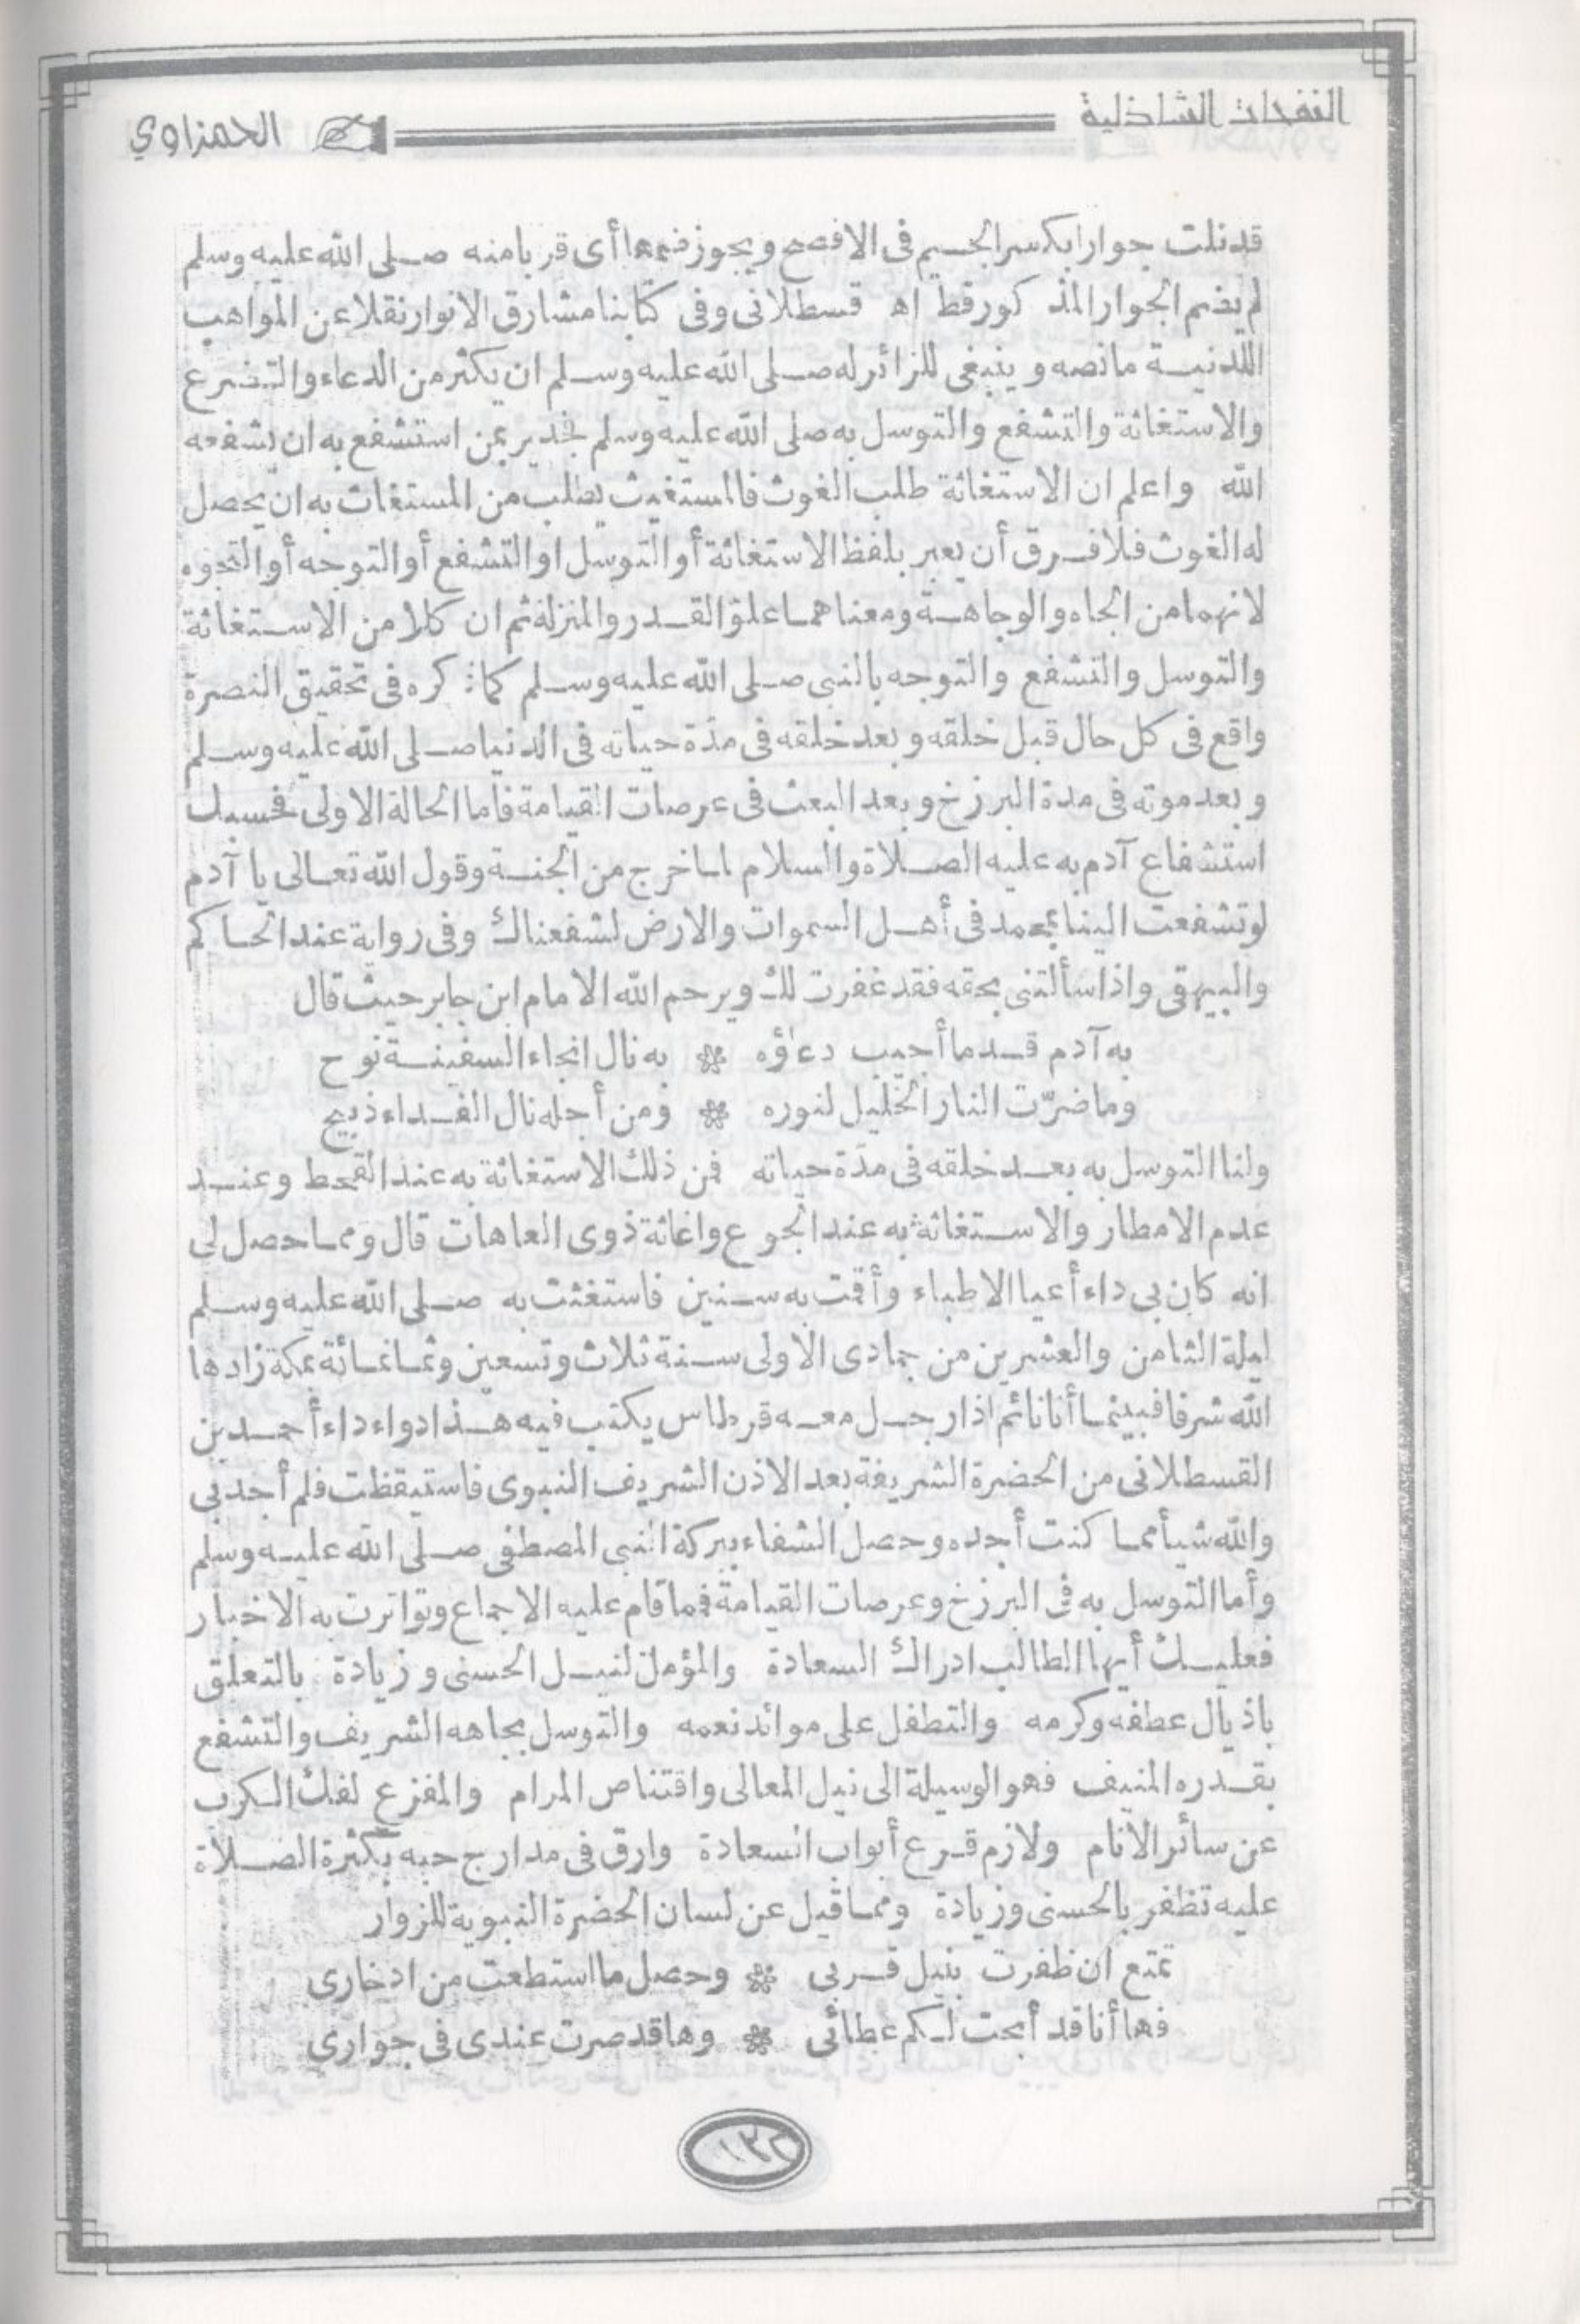 النفحات الشاذلية
الحمزاوي
قد نلت جوارا بكسر الجسيم فى الافصح ويجوز ضمها أى قربا منه صلى الله عليه وسلم
لم يضم الجوار المذ كور قط اه قسطلانى وفى كتابنا مشارق الانوار نقلا عن المواهب
اللدنية ما نصه وينبغى للزائر له صلى الله عليه وسلم ان يكثر من الدعاء والتضرع
والاستغاثة والتشفع والتوسل به صلى الله عليه وسلم فجدير بمن استشفع به ان يشفعه
الله واعلم ان الاستغاثة طلب الغوث فالمستغيث يطلب من المستغاث به ان يحصل
له الغوث فلا فرق أن يعبر بلفظ الاستغاثة أو التوسل او التشفع أو التوجه أو التجوه
لانهما من الجاه والوجاهة ومعناهما علو القدر والمنزلة ثم ان كلا من الاستغاثة
والتوسل والتشفع والتوجه بالنبى صلى الله عليه وسلم كما ذكره فى تحقيق النصرة
واقع فى كل حال قبل خلقه وبعد خلقه فى مدّة حياته فى الدنيا صلى الله عليه وسلم
وبعد موته فى مدة البرزخ وبعد البعث فى عرصات القيامة فاما الحالة الاولى فحسبك
استشفاع آدم به عليه الصلاة والسلام لما خرج من الجنة وقول الله تعالى يا آدم
لو تشفعت الينا بمحمد فى أهل السموات والارض لشفعناك وفى رواية عند الحاكم
والبيهقى واذا سألتنى بحقه فقد غفرت لك ويرحم الله الامام ابن جابر حيث قال
به آدم قد ما أجيب دعاؤه ❀ به نال انجاء السفينة نوح
وما ضرّت النار الخليل لنوره ❀ ومن أجله نال الفداء ذبيح
ولنا التوسل به بعد خلقه فى مدّة حياته فمن ذلك الاستغاثة به عند القحط وعند
عدم الامطار والاستغاثة به عند الجوع واغاثة ذوى العاهات قال ومما حصل لى
انه كان بى داء أعيا الاطباء وأقمت به سنين فاستغثت به صلى الله عليه وسلم
ليلة الثامن والعشرين من جمادى الاولى سنة ثلاث وتسعين وثمانمائة بمكة زادها
الله شرفا فبينما أنا نائم اذا رجل معه قرطاس يكتب فيه هذا دواء داء أحمد بن
القسطلانى من الحضرة الشريفة بعد الاذن الشريف النبوى فاستيقظت فلم أجد بى
والله شيأ مما كنت أجده وحصل الشفاء ببركة النبى المصطفى صلى الله عليه وسلم
وأما التوسل به فى البرزخ وعرصات القيامة فمما قام عليه الاجماع وتواترت به الاخبار
فعليك أيها الطالب ادراك السعادة والمؤمل لنيل الحسنى وزيادة بالتعلق
باذيال عطفه وكرمه والتطفل على موائد نعمه والتوسل بجاهه الشريف والتشفع
بقدره المنيف فهو الوسيلة الى نيل المعالى واقتناص المرام والمفزع لفك الكرب
عن سائر الانام ولازم قرع أبواب السعادة وارق فى مدارج حبه بكثرة الصلاة
عليه تظفر بالحسنى وزيادة ومما قيل عن لسان الحضرة النبوية للزوار
تمتع ان ظفرت بنيل قربى ❀ وحصل ما استطعت من ادخارى
فها أنا قد أبحت لكم عطائى ❀ وها قد صرت عندى فى جوارى
١٣٢